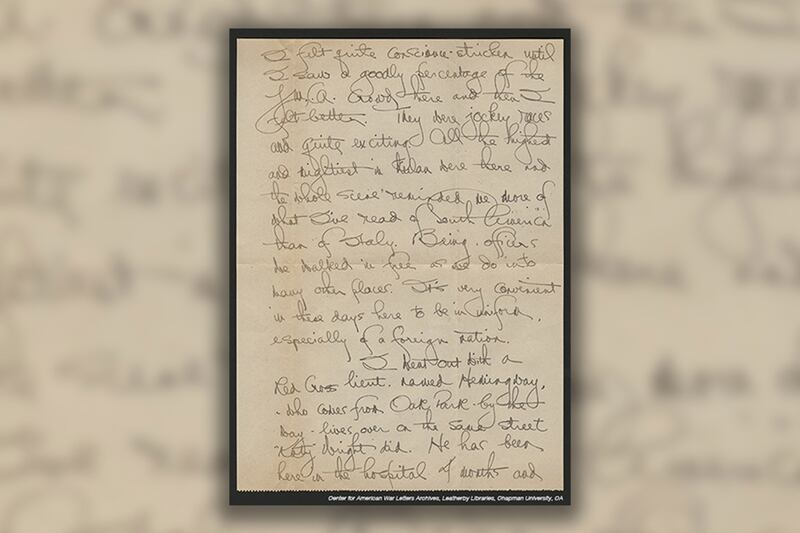 I felt quite conscience-stricken until
I saw a goodly percentage of the
Y.M.C.A. crowd here and then I
felt better. They were jockey races
and quite exciting. All the highest
and mightiest in Milan were there and
the whole scene reminded me more of
what I've read of South America
than of Italy. Being officers
we walked in free as we do into
many other places. It's very convenient
in these days here to be in uniform,
especially of a foreign nation.
I went out with a
Red Cross lieut. named Hemingway,
- who comes from Oak Park by the
way - lives over on the same street
Katy Wright did. He has been
here in the hospital months and
Center for American War Letters Archives, Leatherby Libraries, Chapman University, CA